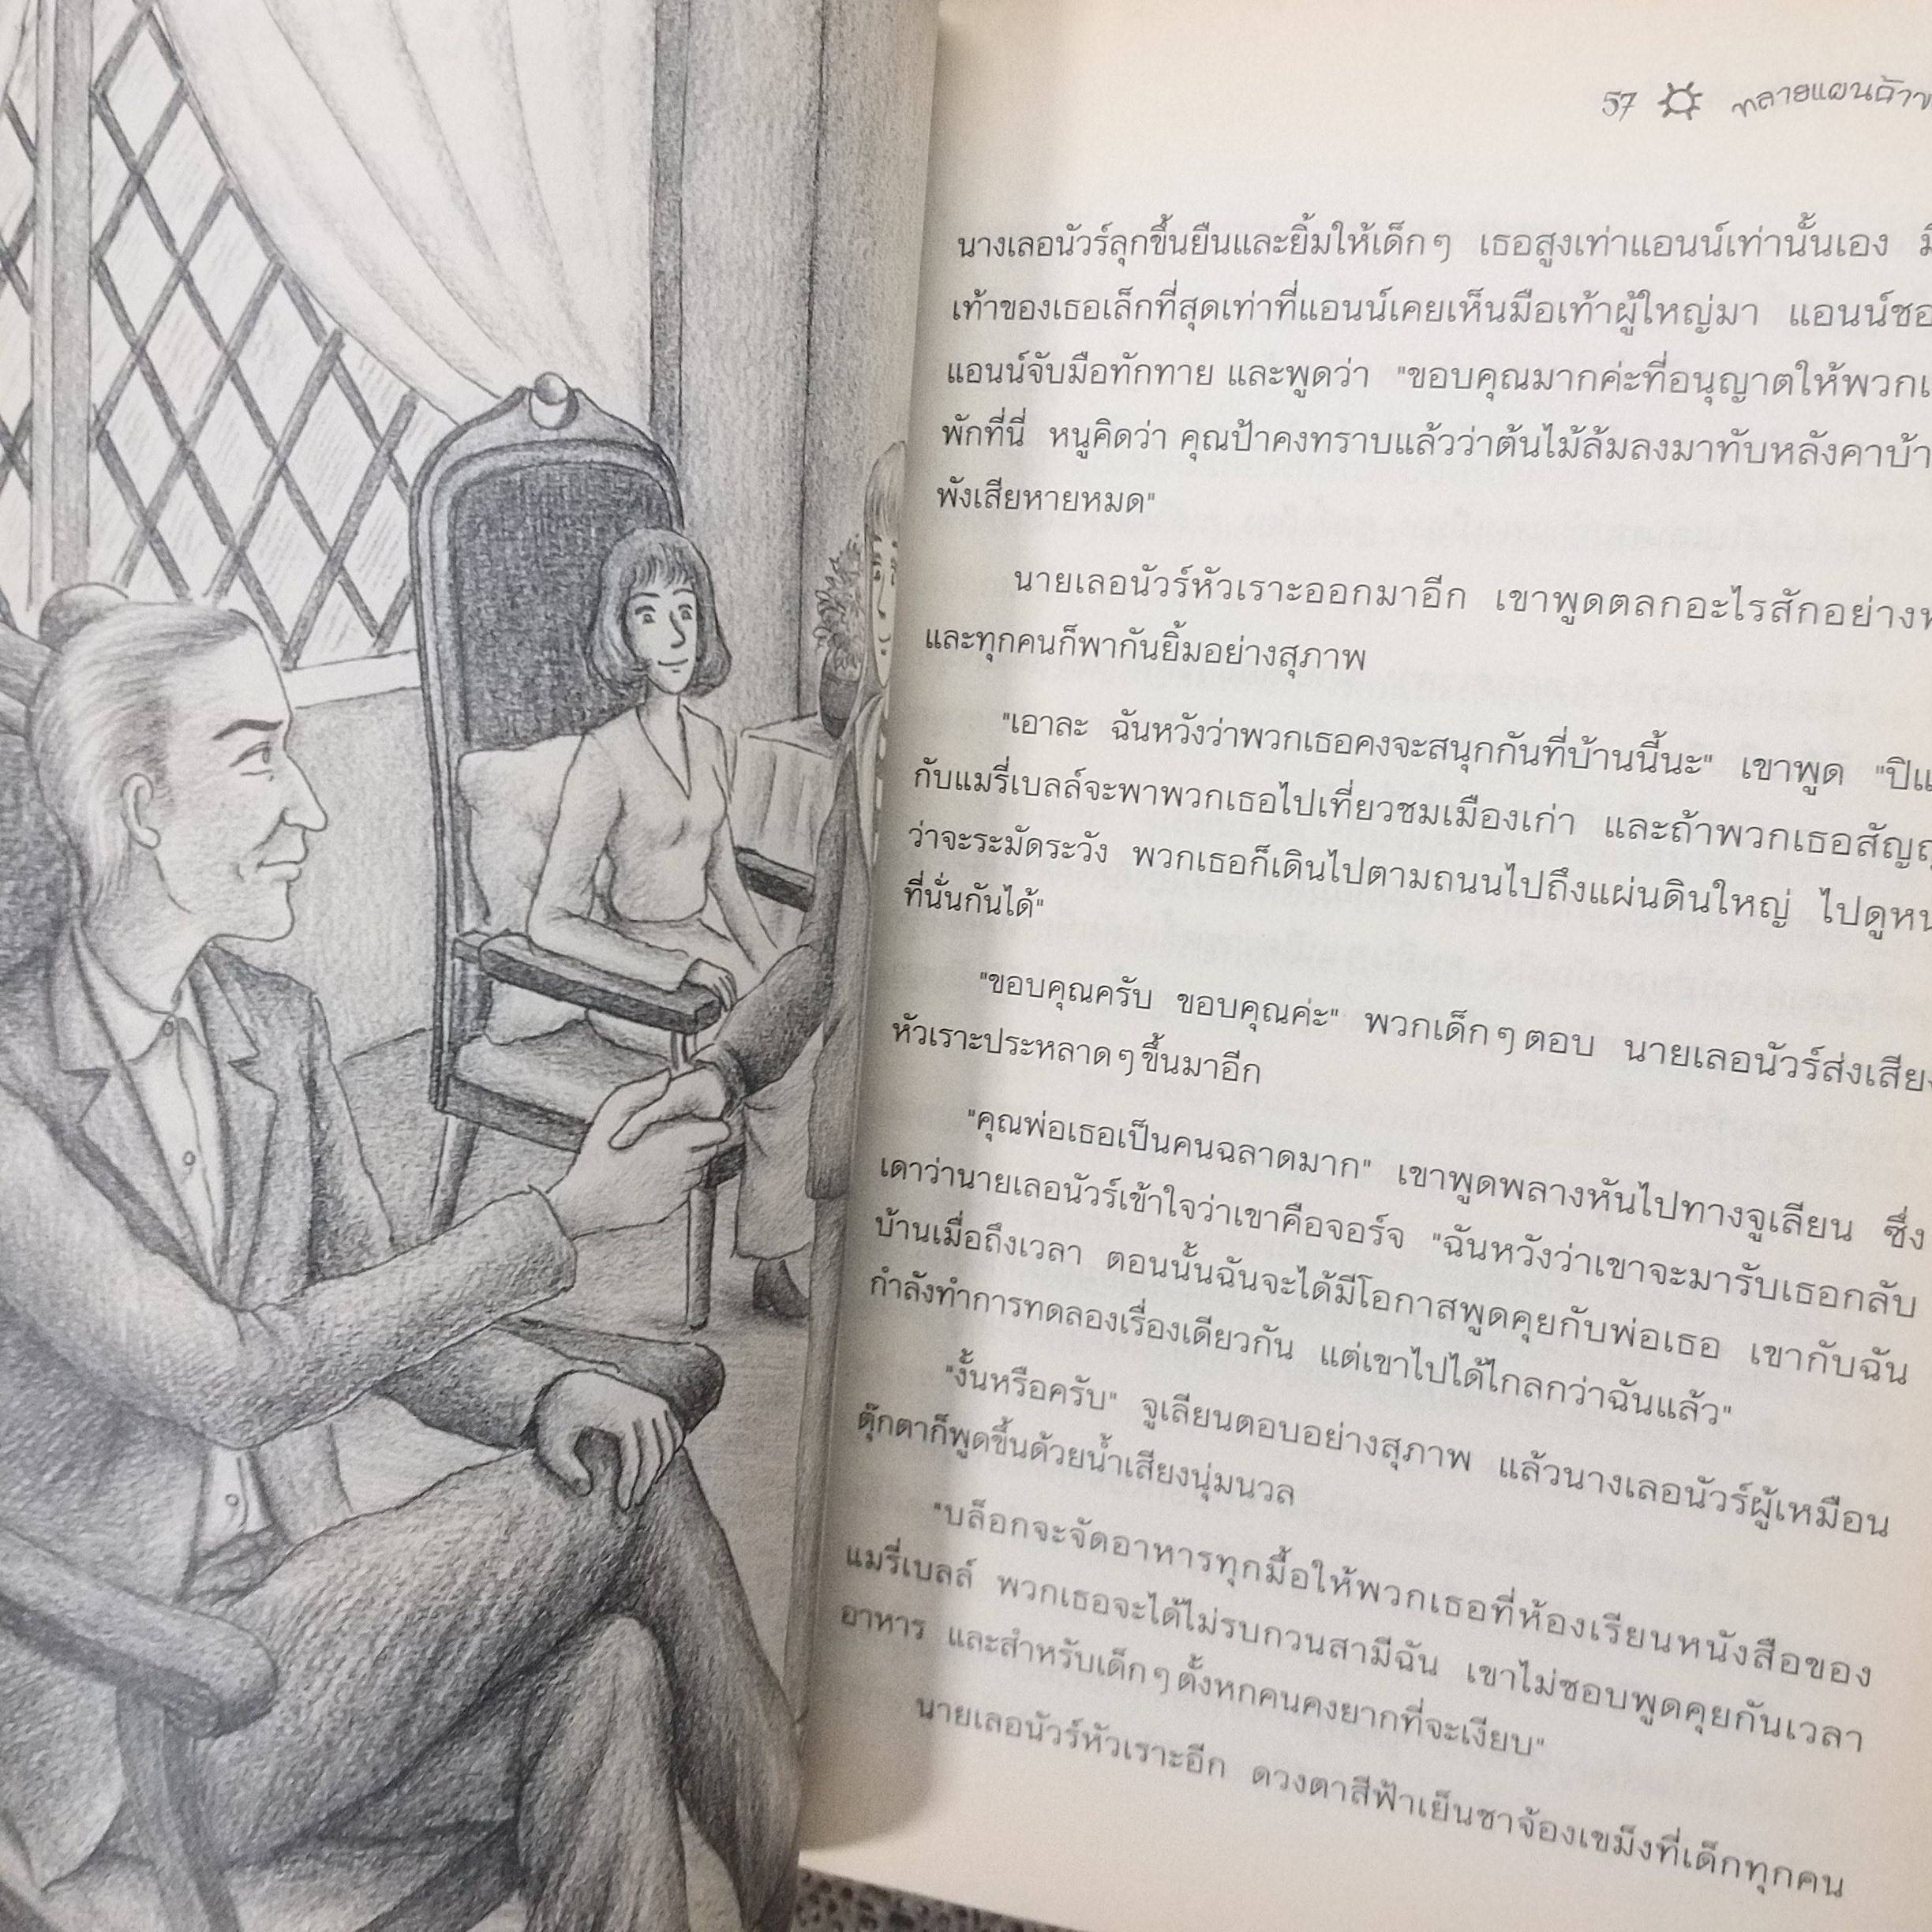 57 ทลายแผนค้าข
นางเลอนัวร์ลุกขึ้นยืนและยิ้มให้เด็กๆ เธอสูงเท่าแอนน์เท่านั้นเอง
เท้าของเธอเล็กที่สุดเท่าที่แอนน์เคยเห็นมือเท้าผู้ใหญ่มา แอนน์ชอ
แอนน์จับมือทักทาย และพูดว่า "ขอบคุณมากค่ะที่อนุญาตให้พวกเ
พักที่นี่ หนูคิดว่า คุณป้าคงทราบแล้วว่าต้นไม้ล้มลงมาทับหลังคาบ้า
พังเสียหายหมด"
นายเลอนัวร์หัวเราะออกมาอีก เขาพูดตลกอะไรสักอย่าง
และทุกคนก็พากันยิ้มอย่างสุภาพ
"เอาละ ฉันหวังว่าพวกเธอคงจะสนุกกันที่บ้านนี้นะ" เขาพูด "ปิแ
กับแมรี่เบลล์จะพาพวกเธอไปเที่ยวชมเมืองเก่า และถ้าพวกเธอสัญญ
ว่าจะระมัดระวัง พวกเธอก็เดินไปตามถนนไปถึงแผ่นดินใหญ่ ไปดูหน
ที่นั่นกันได้"
"ขอบคุณครับ ขอบคุณค่ะ" พวกเด็กๆ ตอบ นายเลอนัวร์ส่งเสียง
หัวเราะประหลาดๆ ขึ้นมาอีก
"คุณพ่อเธอเป็นคนฉลาดมาก" เขาพูดพลางหันไปทางจูเลียน ซึ่ง
เดาว่านายเลอนัวร์เข้าใจว่าเขาคือจอร์จ "ฉันหวังว่าเขาจะมารับเธอกลับ
บ้านเมื่อถึงเวลา ตอนนั้นฉันจะได้มีโอกาสพูดคุยกับพ่อเธอ เขากับฉัน
กำลังทำการทดลองเรื่องเดียวกัน แต่เขาไปได้ไกลกว่าฉันแล้ว"
"งั้นหรือครับ" จูเลียนตอบอย่างสุภาพ แล้วนางเลอนัวร์ผู้เหมือน
ตุ๊กตาก็พูดขึ้นด้วยน้ำเสียงนุ่มนวล
"บล็อกจะจัดอาหารทุกมื้อให้พวกเธอที่ห้องเรียนหนังสือของ
แมรี่เบลล์ พวกเธอจะได้ไม่รบกวนสามีฉัน เขาไม่ชอบพูดคุยกันเวลา
อาหาร และสำหรับเด็กๆ ตั้งหกคนคงยากที่จะเงียบ"
นายเลอนัวร์หัวเราะอีก ดวงตาสีฟ้าเย็นชาจ้องเขม็งที่เด็กทุกคน